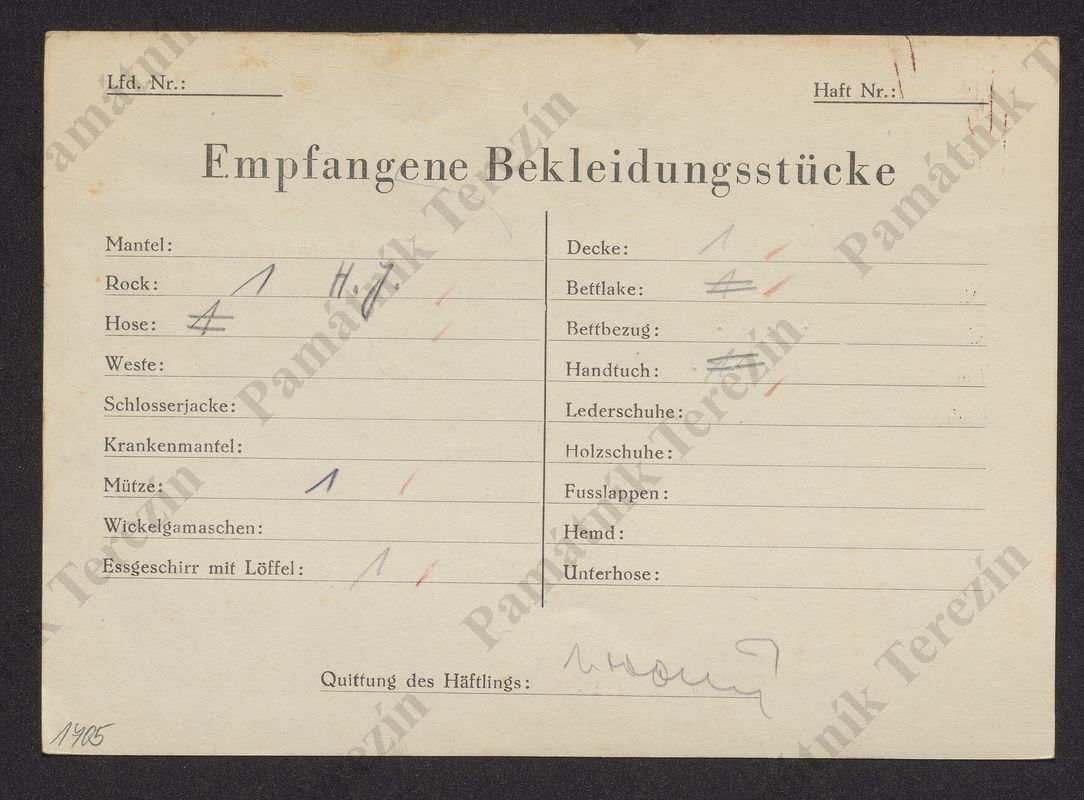 Lfd. Nr.:
Haft Nr.:
Empfangene Bekleidungsstücke
Mantel:
Rock: 1 H. J.
Hose: 1
Weste:
Schlosserjacke:
Krankenmantel:
Mütze: 1
Wickelgamaschen:
Essgeschirr mit Löffel: 1
Decke: 1
Bettlake: 1
Bettbezug:
Handtuch: 1
Lederschuhe:
Holzschuhe:
Fusslappen:
Hemd:
Unterhose:
Quittung des Häftlings:
1705
Památník Terezín
Památník Terezín
Památník Terezín
Památník Terezín